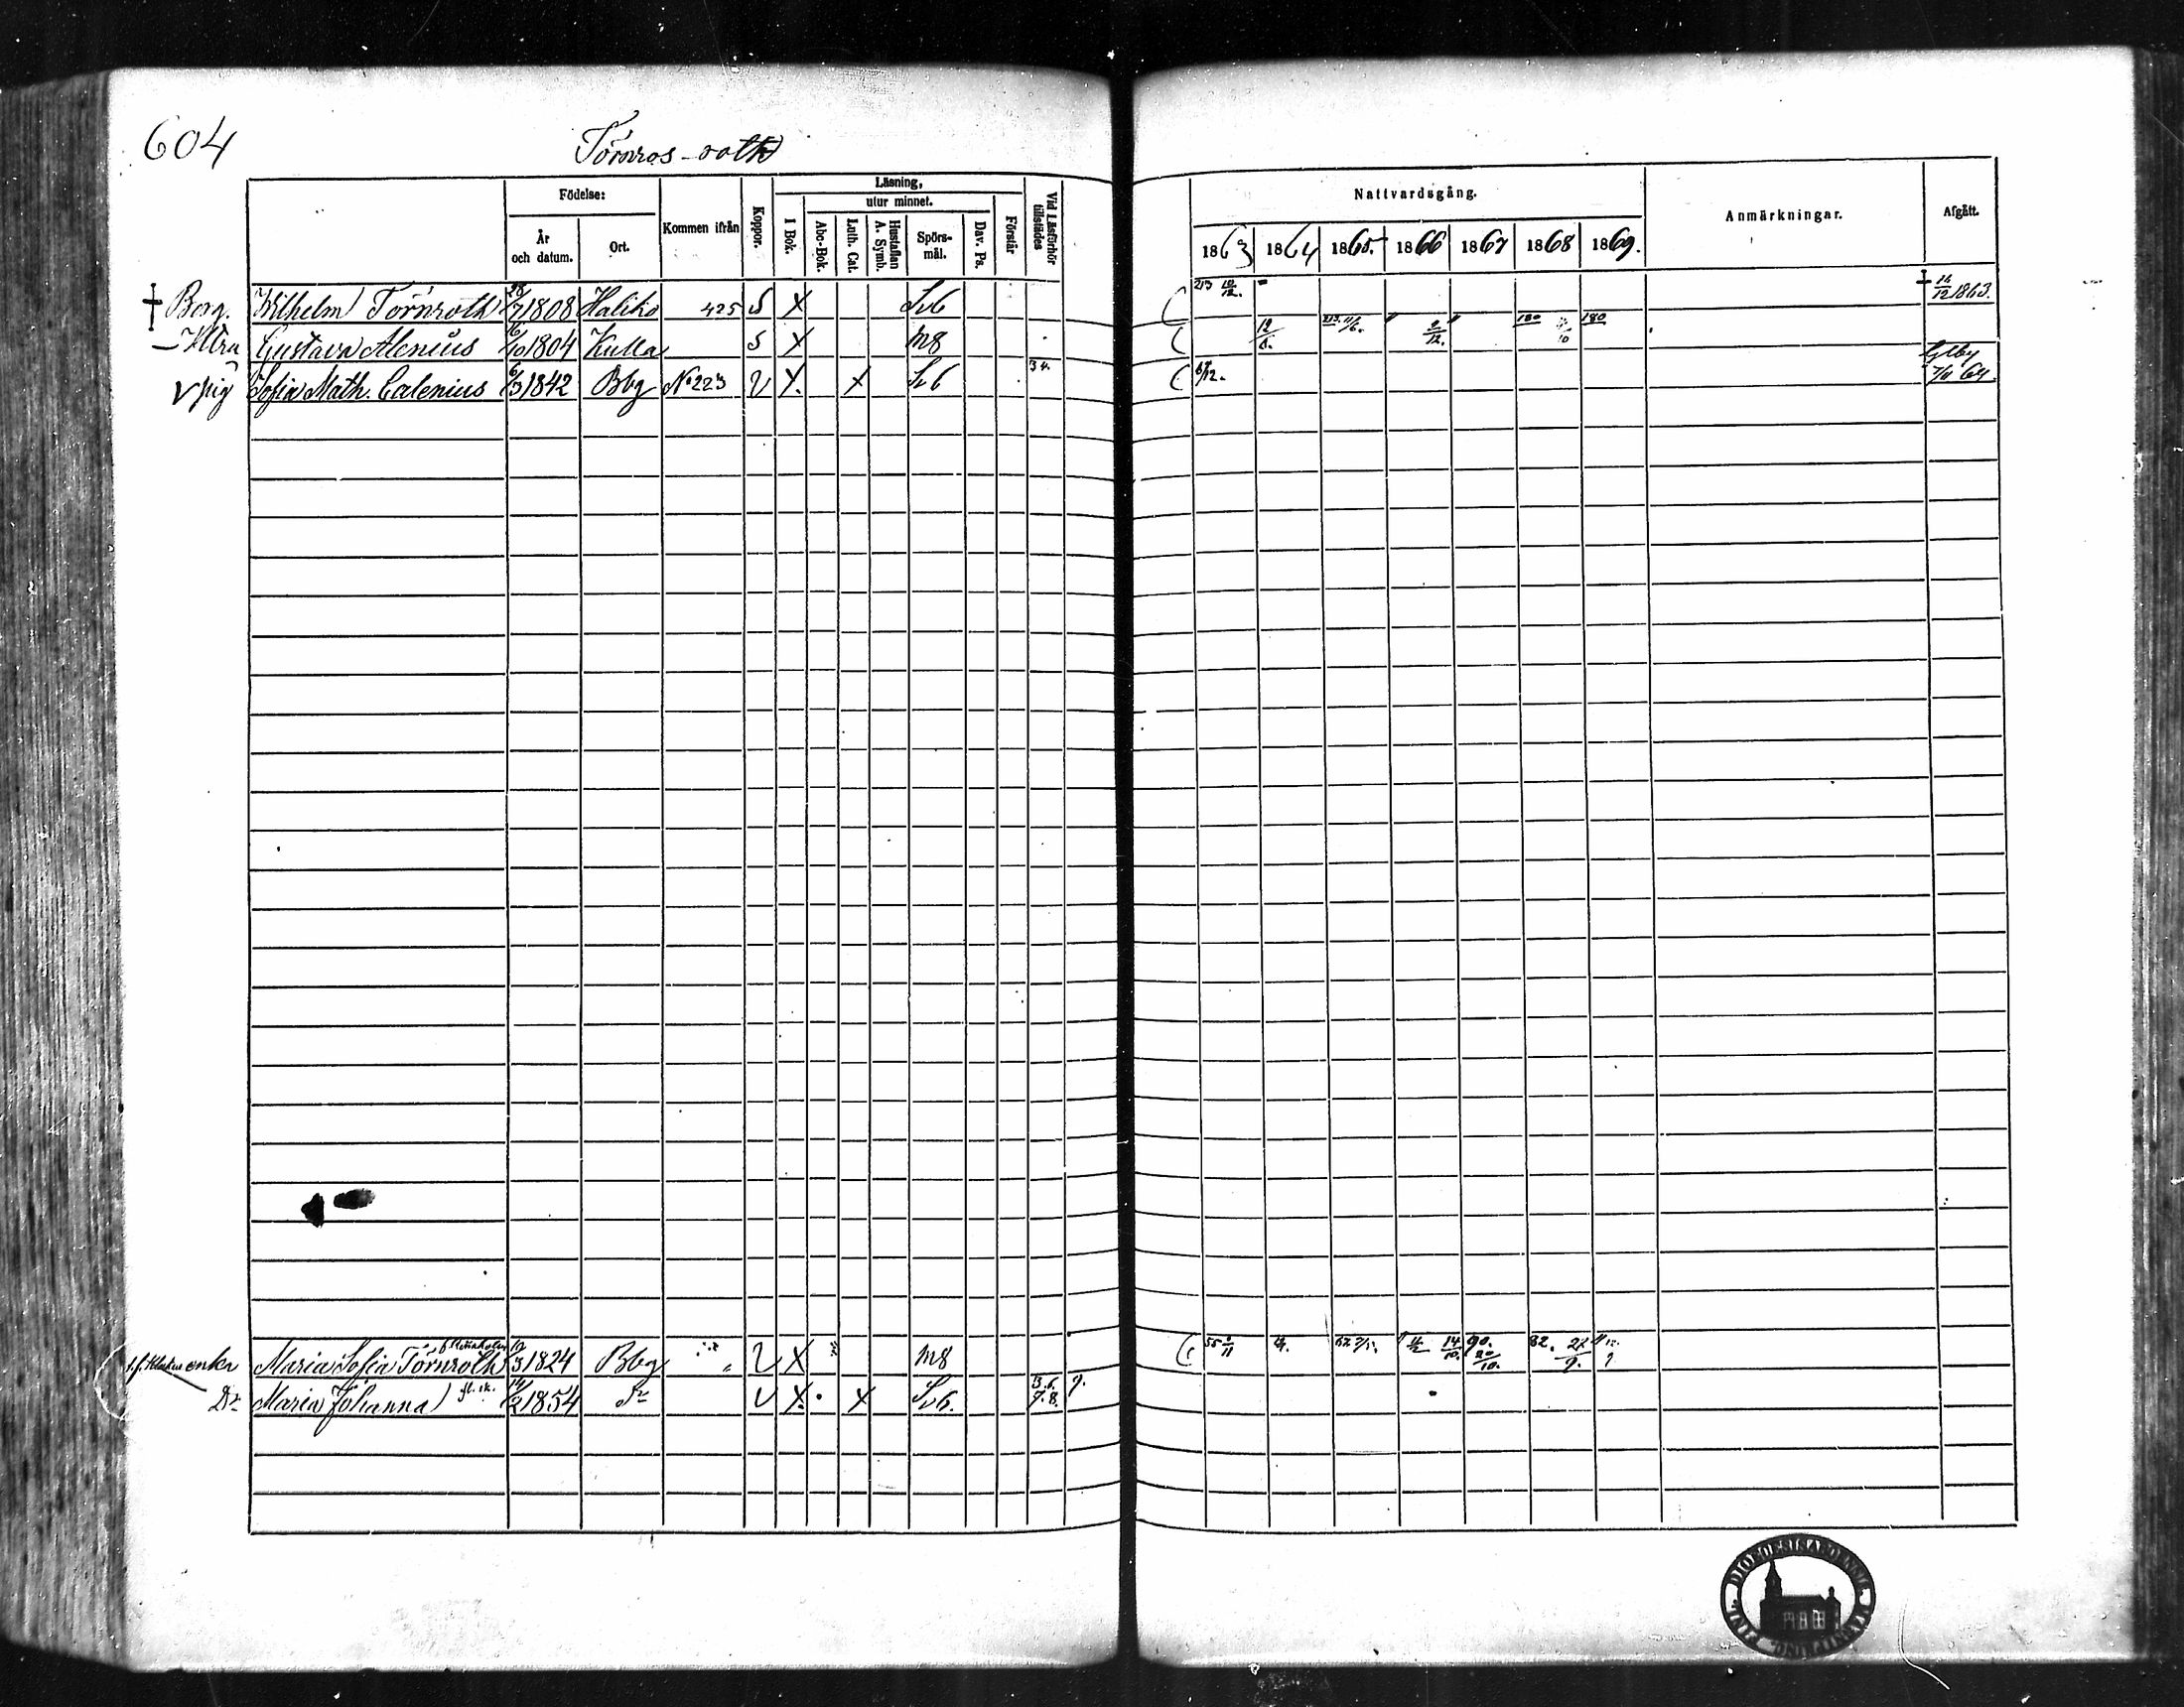 604
Törnros-roth
Födelse:
År och datum.
Ort.
Kommen ifrån
Koppor.
Läsning,
utur minnet.
I Bok.
Abc-Bok.
Luth. Cat.
Hustaflan A. Symb.
Spörs-mål.
Dav. Ps.
Förstår
Vid Läsförhör tillstädes
Nattvardsgång.
1863 1864 1865. 1866 1867 1868 1869.
Anmärkningar.
Afgått.
† Borg. Wilhelm Törnroth 28/7 1808 Haliko 425 S X Sv6 213 10/12. † 16/12 1863.
Gustava Alenius 16/10 1804 Kulla S X m8 12/6. 213. 11/6. 2/12. 180 180
V pig Sofia Math. Calenius 6/3 1842 Bbg No 223 V X. X Sv6 34. 6/12. 7/11 64.
enka Maria Sofia Törnroth 10/3 1824 Bbg V X m8 55 11 14/10. 90. 20/10. 82. 27/9.
Dr Maria Johanna 14/2 1854 Dr V X. X Sv6. 3.6. 7.8. 9.